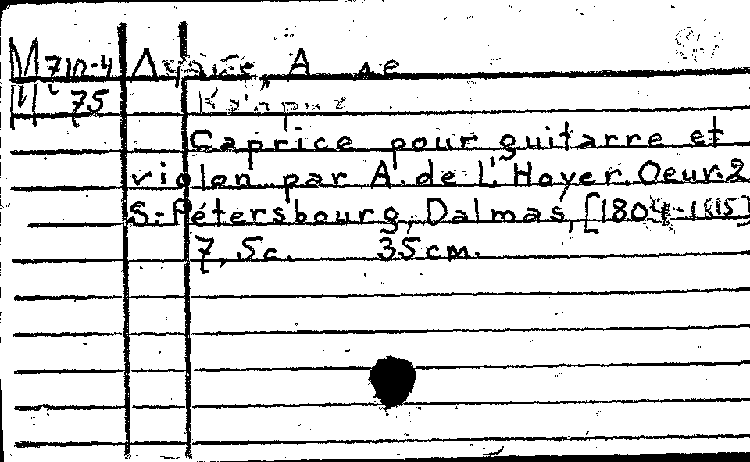 М 710-4
75
Caprice pour guitarre et
violon par A. de L'Hoyer. Oeur. 2
S.-Pétersbourg, Dalmas, [1804-1815]
7, 5c. 35 cm.